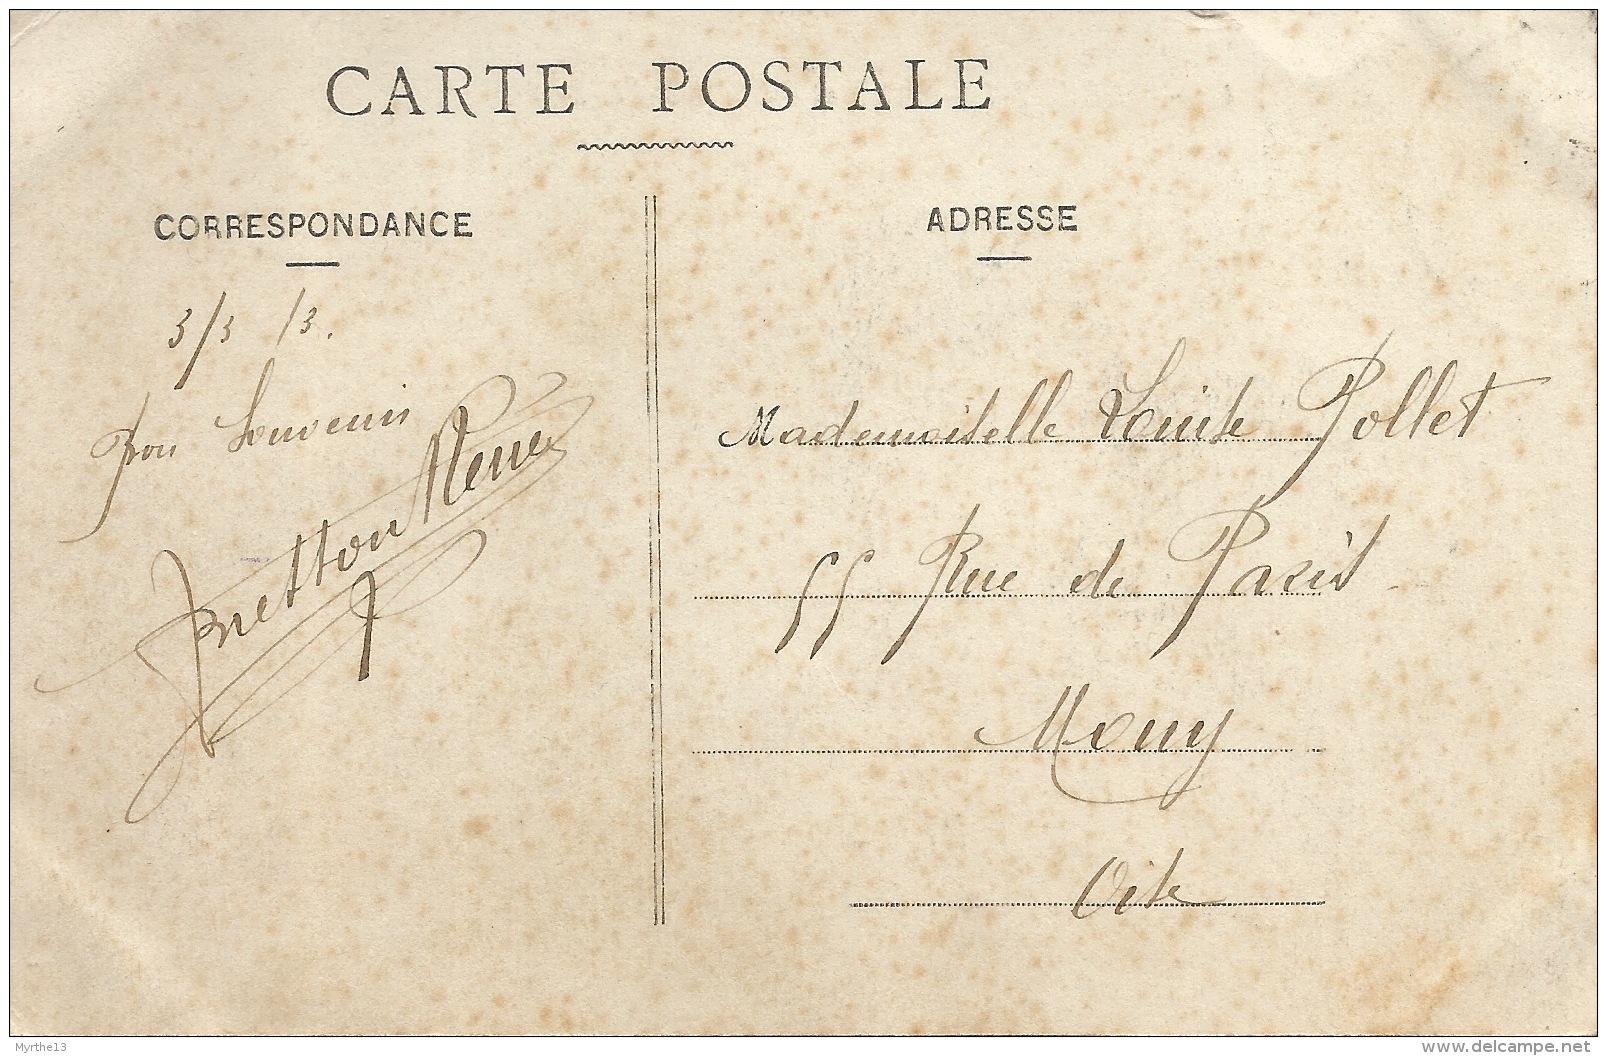 CARTE POSTALE
CORRESPONDANCE
ADRESSE
3/3 13.
Bon Souvenir
Bretton Renée
Mademoiselle Louise Pollet
55 Rue de Paris
Mouy
Oise
Myrthe13
www.delcampe.net